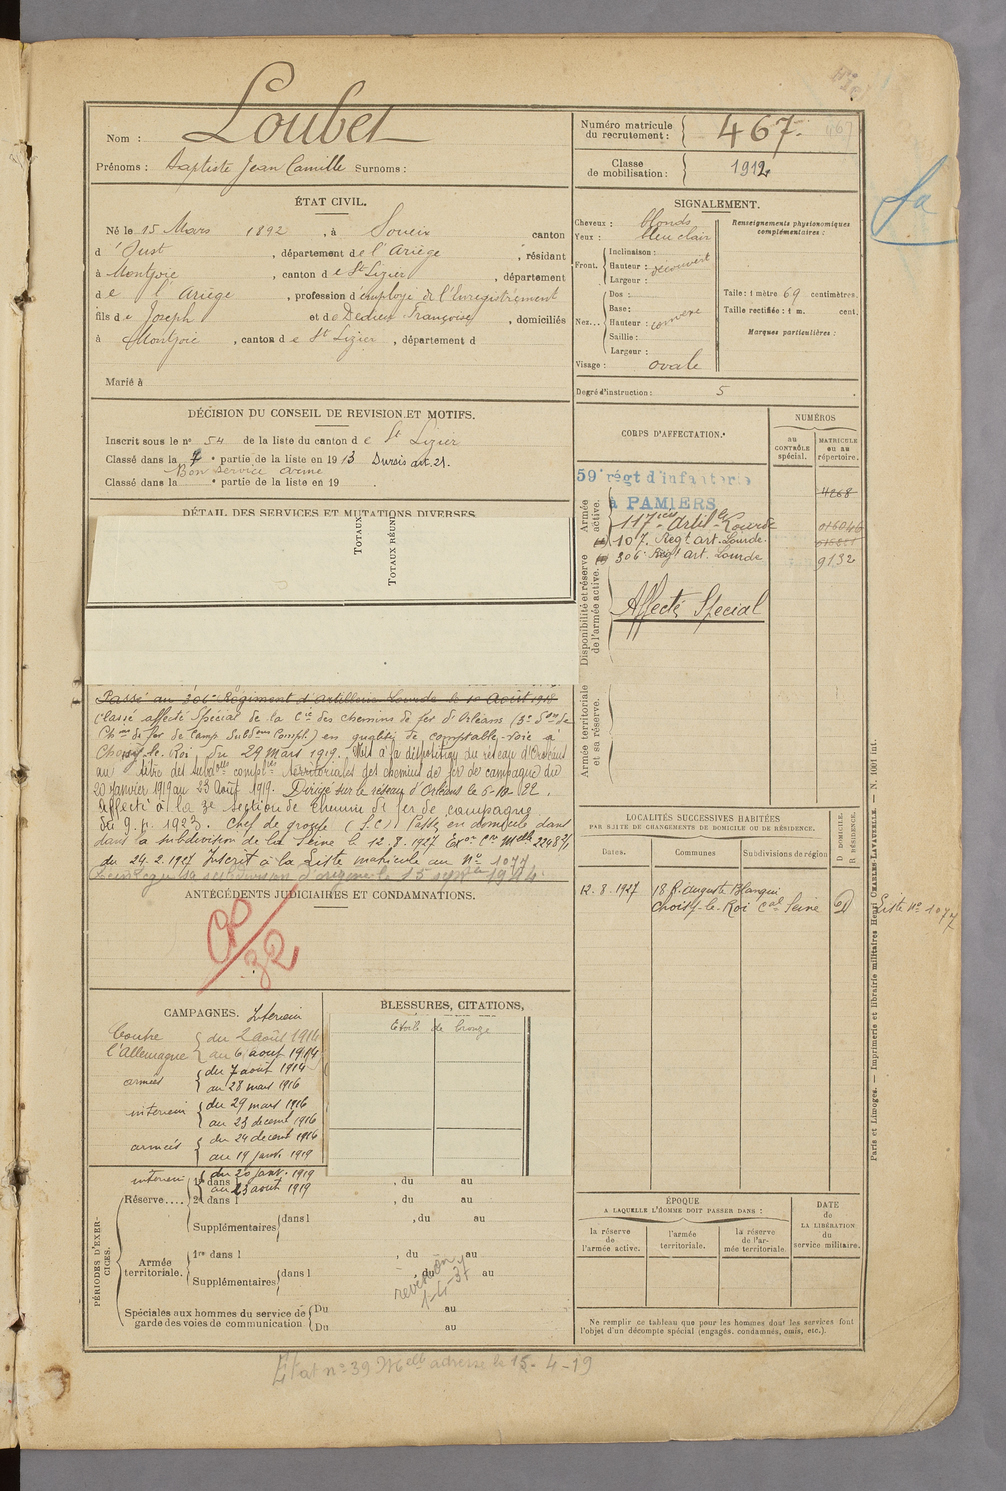 Nom : Loubet
Prénoms : Baptiste Jean Camille Surnoms :
Numéro matricule du recrutement : 467.
Classe de mobilisation : 1912
ÉTAT CIVIL.
Né le 15 Mars 1892, à Soueix canton
d'Oust, département de l'Ariège, résidant
à Montjoie, canton de St Lizier, département
de l'Ariège, profession d'employé de l'Enregistrement
fils de Joseph et de Dedieu Françoise, domiciliés
à Montjoie, canton de St Lizier, département d
Marié à
SIGNALEMENT.
Cheveux : blonds
Yeux : bleu clair
Front. Inclinaison :
Hauteur : découvert
Largeur :
Nez... Dos :
Base :
Hauteur : convexe
Saillie :
Largeur :
Visage : ovale
Renseignements physionomiques complémentaires :
Taille : 1 mètre 69 centimètres.
Taille rectifiée : 1 m. cent.
Marques particulières :
Degré d'instruction : 5
DÉCISION DU CONSEIL DE REVISION ET MOTIFS.
Inscrit sous le n° 54 de la liste du canton de St Lizier
Classé dans la partie de la liste en 1913 Sursis art. 21.
Bon service armé
Classé dans la e partie de la liste en 19 .
DÉTAIL DES SERVICES ET MUTATIONS DIVERSES
TOTAUX
TOTAUX RÉUNIS
Passé au 306e Régiment d'artillerie Lourde le 1er Août 1918
Classé affecté Spécial de la Cie des chemins de fer d'Orléans (3e Son de
Chins de fer de Camp Subdons Compl.) en qualité de comptable-voie à
Choisy-le-Roi, du 29 Mars 1919. Mis à la disposition du réseau d'Orléans
au titre des subdons complres territoriales des chemins de fer de campagne du
20 janvier 1919 au 23 Août 1919. Dirigé sur le réseau d'Orléans le 6-10-22.
Affecté à la 3e section de chemin de fer de campagne
Chef de groupe (S.C.) Passé en domicile dans
dans la subdivision de la Seine le 12.8.1927
du 24.2.1927 Inscrit à la Liste matricule au N° 1077
sa subdivision d'origine le 15
CORPS D'AFFECTATION.
NUMÉROS
au CONTRÔLE spécial.
MATRICULE ou au répertoire.
Armée active.
59e régt d'infanterie à PAMIERS 4268
Disponibilité et réserve de l'armée active.
117e artille Lourde 016046
107e Régt art. Lourde
306e Régt art. Lourde 9132
Affecté Spécial
Armée territoriale et sa réserve.
LOCALITÉS SUCCESSIVES HABITÉES
PAR SUITE DE CHANGEMENTS DE DOMICILE OU DE RÉSIDENCE.
Dates. Communes Subdivisions de région D DOMICILE. R RÉSIDENCE.
12.8.1927 18 R. Auguste Blanqui
Choisy-le-Roi Cal Seine D Liste N° 1077
ANTÉCÉDENTS JUDICIAIRES ET CONDAMNATIONS.
CAMPAGNES. Intérieur
Contre l'Allemagne
du 2 août 1914
au 6 août 1914
armées du 7 août 1914
au 28 mars 1916
intérieur du 29 mars 1916
au 23 décemt 1916
armées du 24 décemt 1916
au 19 janv. 1919
intérieur du 20 janv. 1919
au 23 août 1919
BLESSURES, CITATIONS,
Etoile de bronze
PÉRIODES D'EXERCICES.
Réserve.... 1re dans l , du au
2e dans l , du au
Supplémentaires dans l , du au
Armée territoriale. 1re dans l , du au
Supplémentaires dans l , du au
revision 1-4-31
Spéciales aux hommes du service de garde des voies de communication Du au
Du au
ÉPOQUE
A LAQUELLE L'HOMME DOIT PASSER DANS :
la réserve de l'armée active.
l'armée territoriale.
la réserve de l'armée territoriale
DATE de LA LIBÉRATION du service militaire.
Ne remplir ce tableau que pour les hommes dont les services font
l'objet d'un décompte spécial (engagés, condamnés, omis, etc.).
Paris et Limoges. — Imprimerie et librairie militaires Henri CHARLES-LAVAUZELLE. — N. 1001 int.
Etat n° 39 Melle adressé le 15-4-19